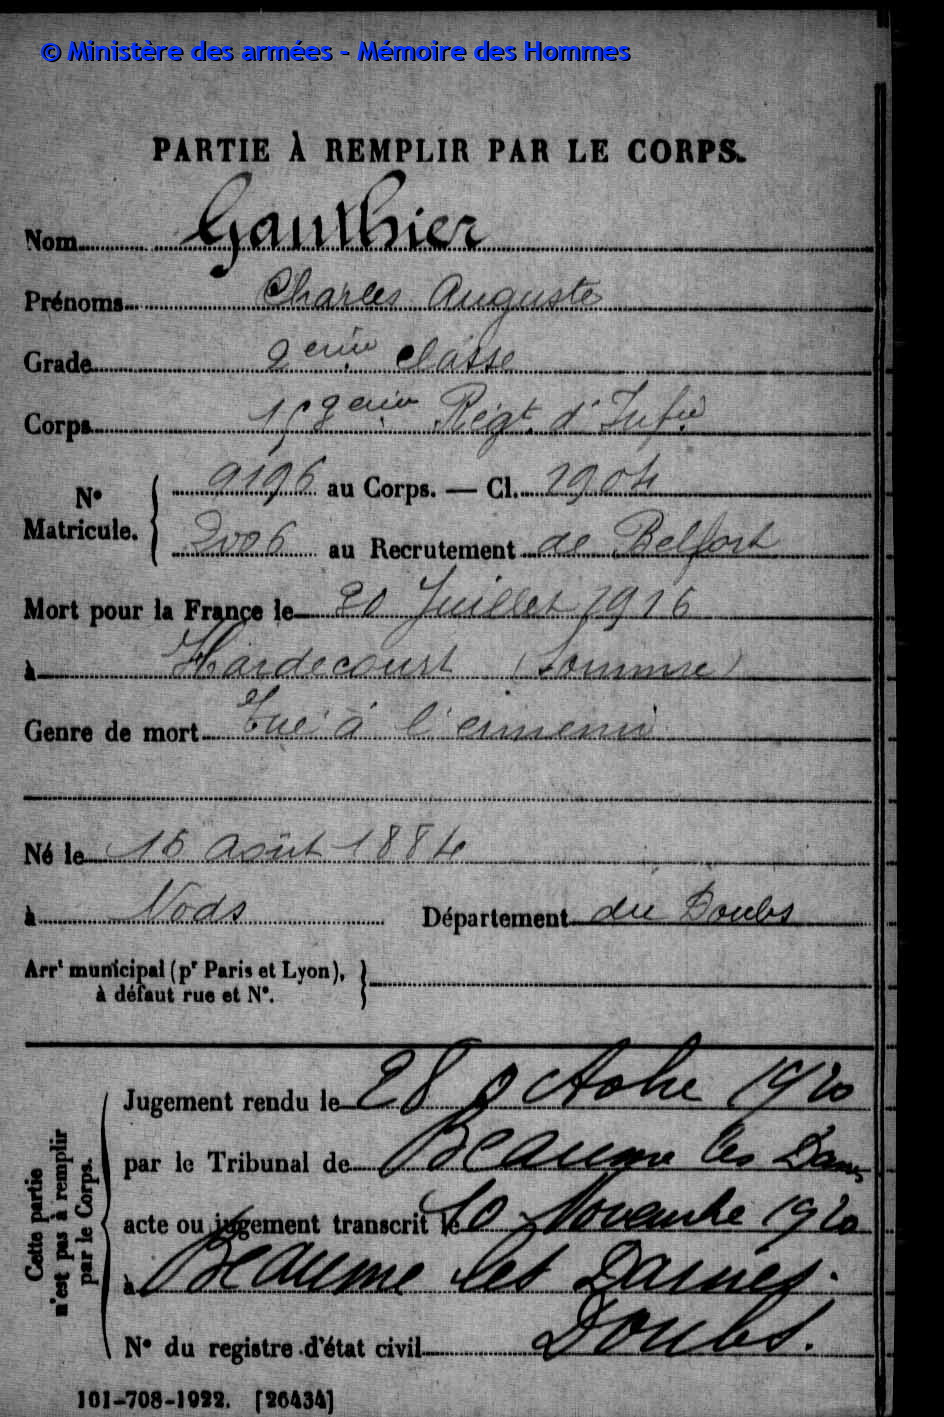 © Ministère des armées - Mémoire des Hommes
PARTIE À REMPLIR PAR LE CORPS.
Nom Gauthier
Prénoms Charles Auguste
Grade 2eme classe
Corps 152eme Régt. d'Infie
N° Matricule. 9196 au Corps. — Cl. 1904
2006 au Recrutement de Belfort
Mort pour la France le 20 Juillet 1916
à Hardecourt (Somme)
Genre de mort Tué à l'ennemi
Né le 16 août 1884
à Nods Département du Doubs
Arrt municipal (pr Paris et Lyon),
à défaut rue et N°.
Cette partie
n'est pas à remplir
par le Corps.
Jugement rendu le 28 octobre 1920
par le Tribunal de Beaume les Dames
acte ou jugement transcrit le 10 Novembre 1920
à Beaume les Dames.
Doubs.
N° du registre d'état civil
101-708-1922. [26434]